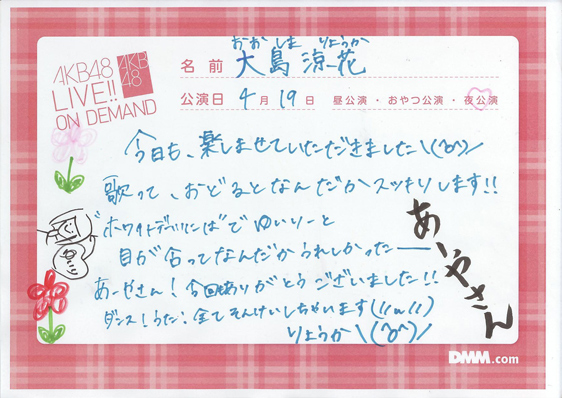 AKB48
LIVE!!
ON DEMAND
AKB
48
おおしま りょうか
名前 大島 涼花
公演日 4月19日 昼公演・おやつ公演・夜公演
今日も、楽しませていただきました\(^o^)/
歌って、おどるとなんだかスッキリします!!
"ホワイトデーには"でゆいりーと
目が合ってなんだかうれしかったー
あーやさん!今日はありがとうございました!!
ダンス!うた!全てそんけいしちゃいます(//∪//)
りょうか\(^o^)/
あーやさん
DMM.com